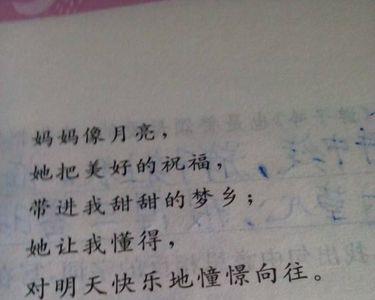 妈妈像月亮，
她把美好的祝福，
带进我甜甜的梦乡；
她让我懂得，
对明天快乐地憧憬向往。